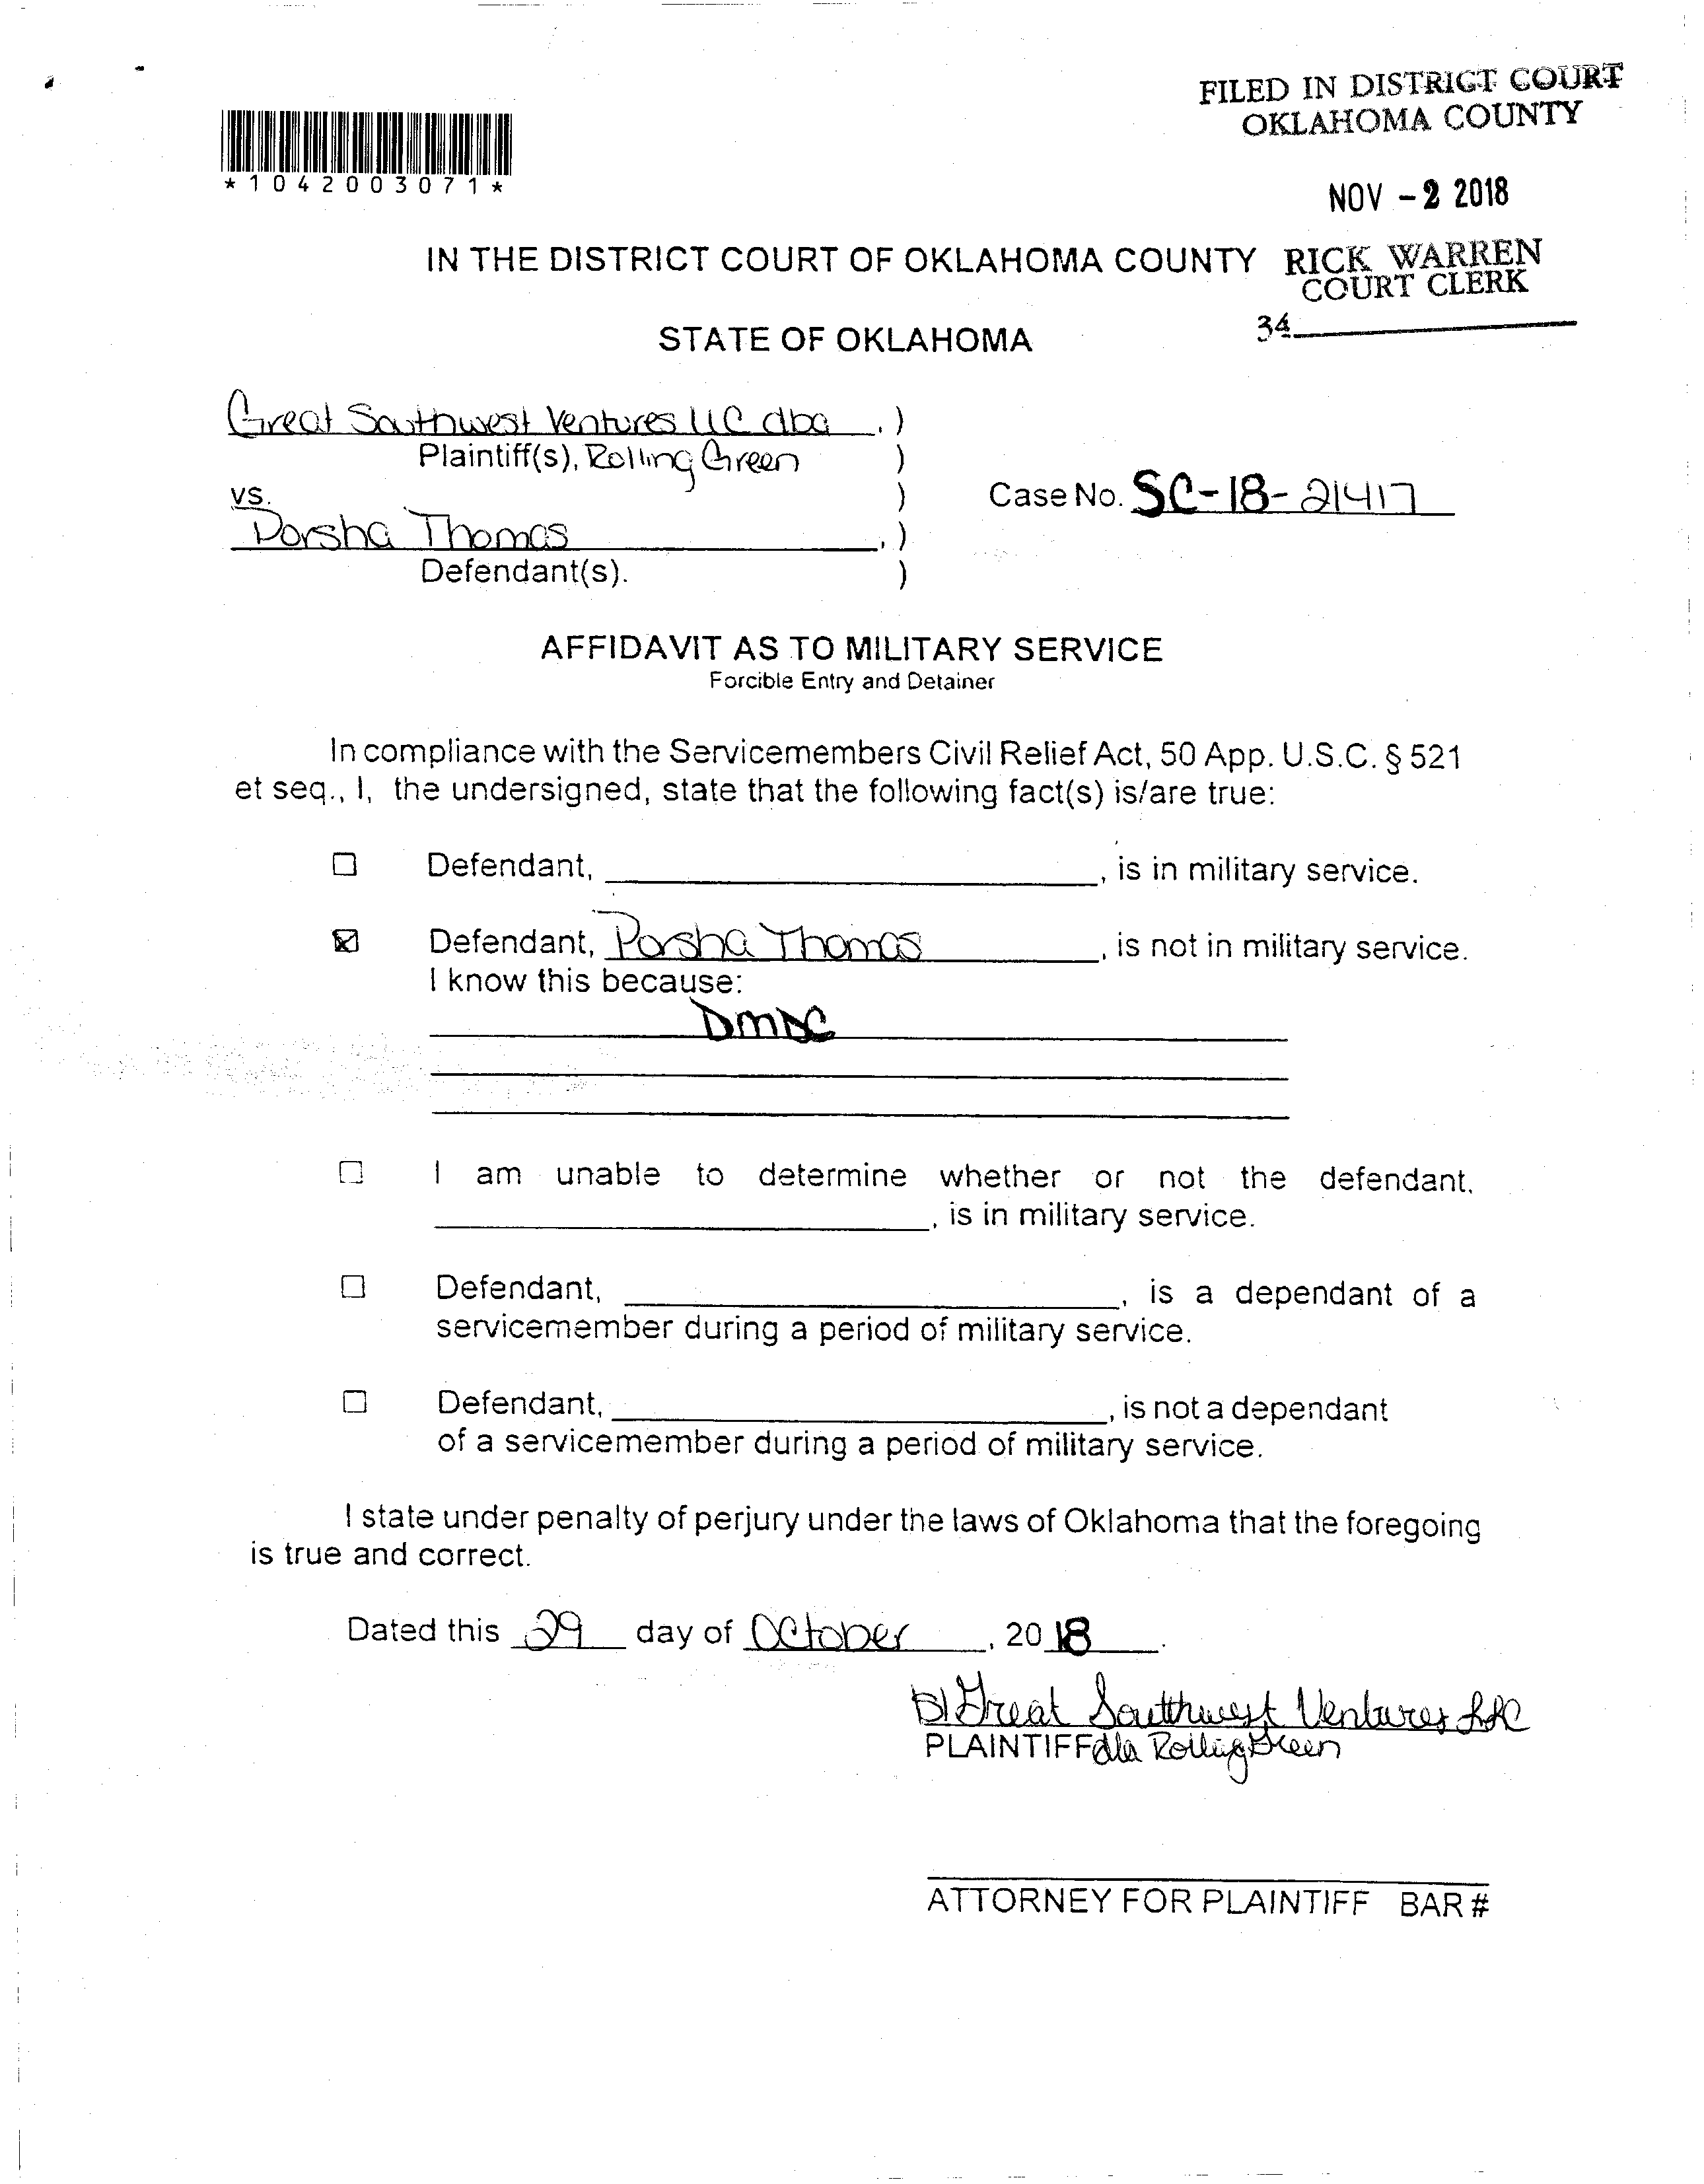 FILED IN DISTRICT COURT
OKLAHOMA COUNTY
*1042003071*
NOV -2 2018
IN THE DISTRICT COURT OF OKLAHOMA COUNTY
RICK WARREN
COURT CLERK
STATE OF OKLAHOMA
34
Great Southwest Ventures LLC dba , )
Plaintiff(s), Rolling Green )
vs. ) Case No. SC-18-21417
Porsha Thomas , )
Defendant(s). )
AFFIDAVIT AS TO MILITARY SERVICE
Forcible Entry and Detainer
In compliance with the Servicemembers Civil Relief Act, 50 App. U.S.C. § 521
et seq., I, the undersigned, state that the following fact(s) is/are true:
☐ Defendant, , is in military service.
☒ Defendant, Porsha Thomas , is not in military service.
I know this because:
DMDC
☐ I am unable to determine whether or not the defendant,
, is in military service.
☐ Defendant, , is a dependant of a
servicemember during a period of military service.
☐ Defendant, , is not a dependant
of a servicemember during a period of military service.
I state under penalty of perjury under the laws of Oklahoma that the foregoing
is true and correct.
Dated this 29 day of October , 20 18 .
Great Southwest Ventures LLC
PLAINTIFF dba Rolling Green
ATTORNEY FOR PLAINTIFF BAR #